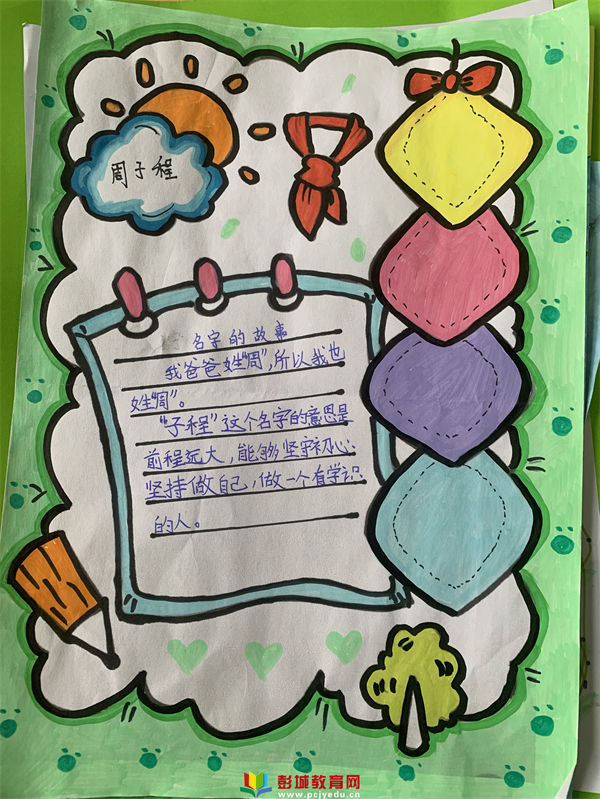 周子程
名字的故事
我爸爸姓“周”,所以我也
姓“周”。
“子程”这个名字的意思是
前程远大,能够坚守初心
坚持做自己,做一个有学识
的人。
彭城教育网
www.pcjyedu.cn